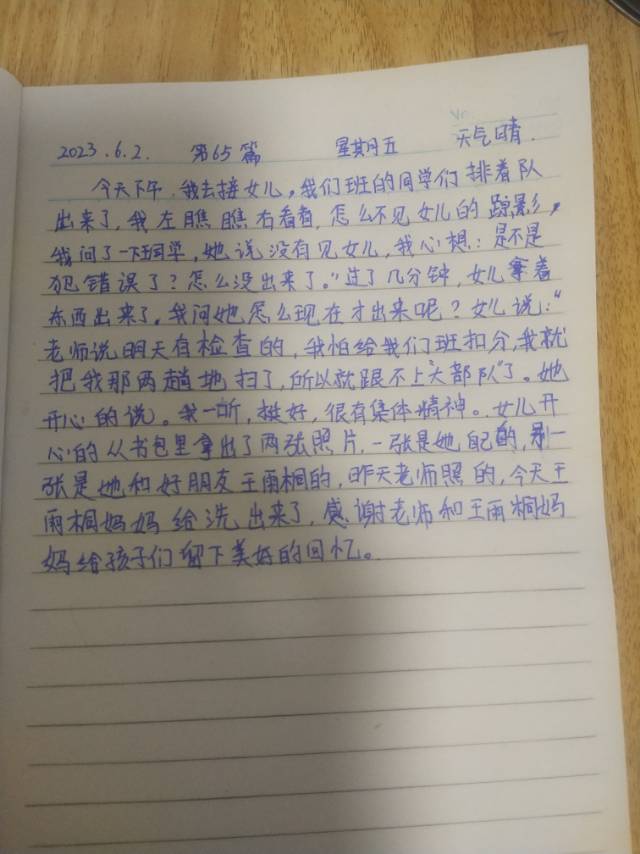 2023.6.2. 第65篇 星期五 天气晴.
今天下午,我去接女儿,我们班的同学们排着队
出来了,我左瞧瞧右看看,怎么不见女儿的踪影,
我问了一下同学,她说没有见女儿,我心想:是不是
犯错误了?怎么没出来了。"过了几分钟,女儿拿着
东西出来了。我问她怎么现在才出来呢?女儿说:"
老师说明天有检查的,我怕给我们班扣分,我就
把我那两趟地扫了,所以就跟不上"大部队"了。她
开心的说。我一听,挺好,很有集体精神。女儿开
心的从书包里拿出了两张照片,一张是她自己的,另一
张是她和好朋友王雨桐的,昨天老师照的,今天王
雨桐妈妈给洗出来了,感谢老师和王雨桐妈
妈给孩子们留下美好的回忆。